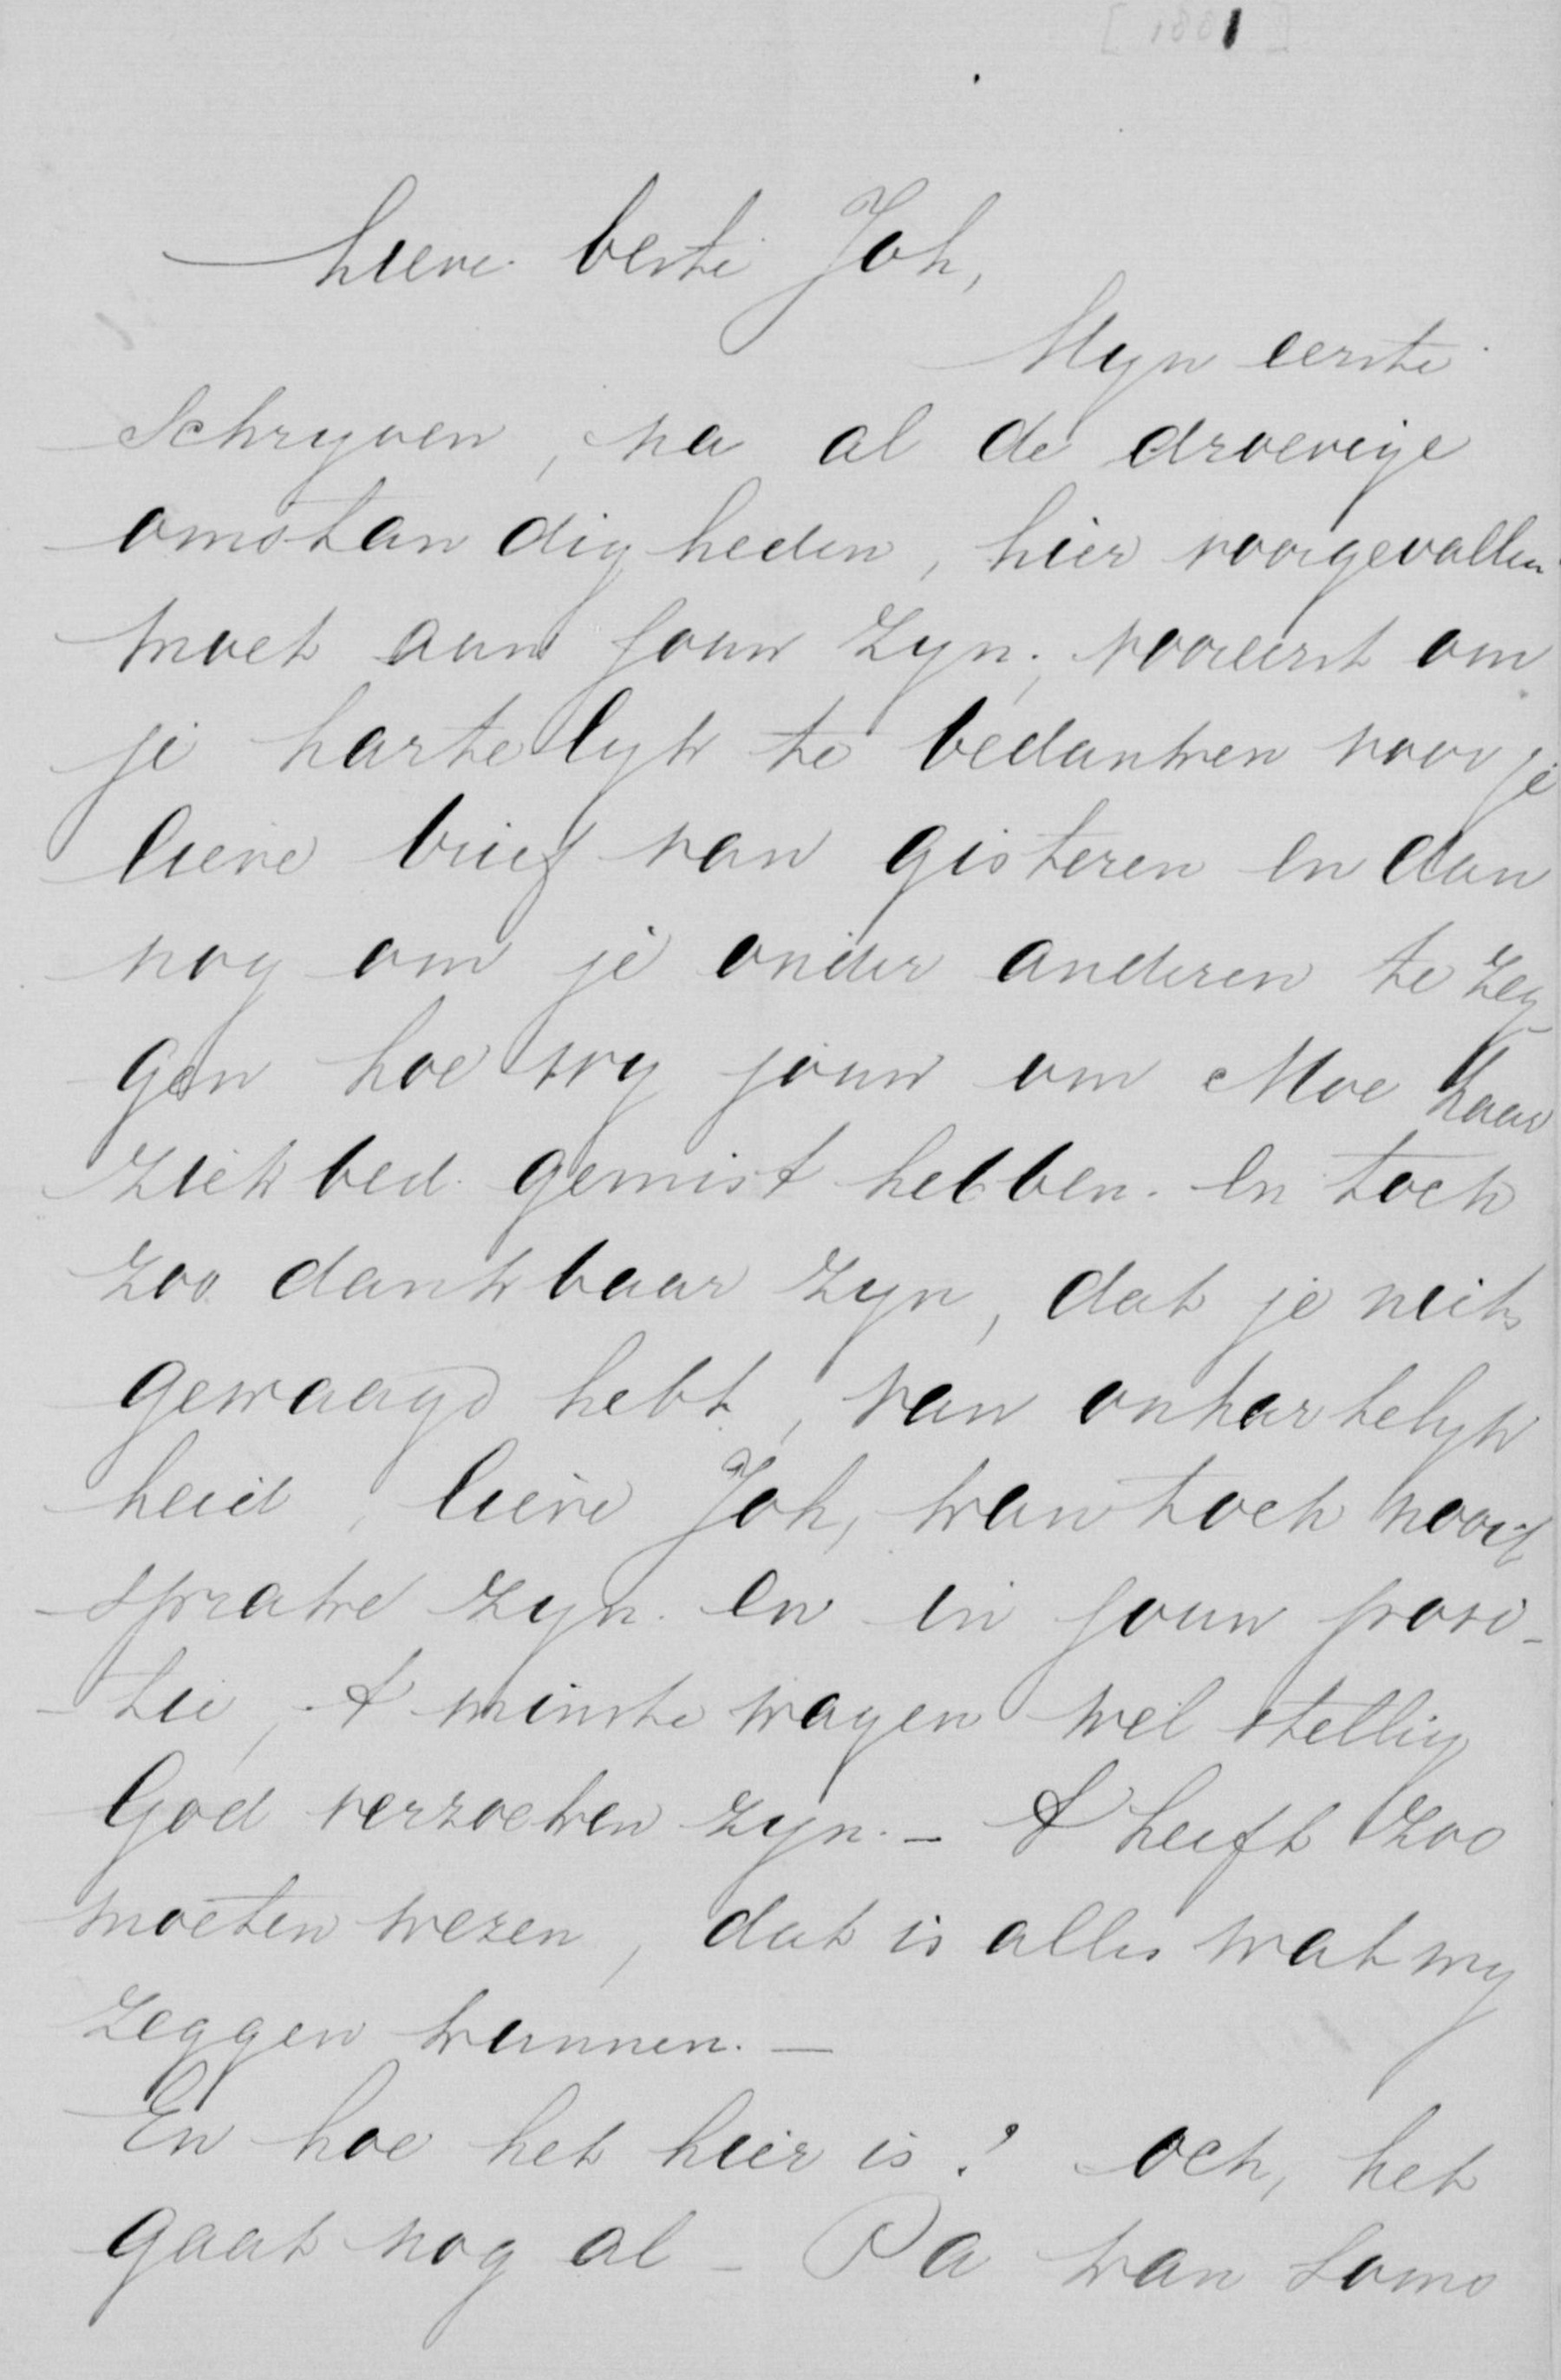 Lieve beste Joh,
Myn eerste
schryven, na al de droevige
omstandigheden, hier voorgevallen
moet aan jouw zyn; vooreerst om
je hartelyk te bedanken voor je
lieve brief van gisteren en dan
nog om je onder anderen te zeg-
gen hoe wy jouw om Moe haar
ziekbed gemist hebben. En toch
zoo dankbaar zyn, dat je niets
gewaagd hebt, van onhartelyk
heid, lieve Joh, kan toch nooit
sprake zyn en in jouw posi-
tie, 't minste wagen wel stellig
God verzoeken zyn. - 't heeft zoo
moeten wezen, dat is alles wat wy
zeggen kunnen. -
En hoe het hier is? och, het
gaat nog al - Pa kan soms